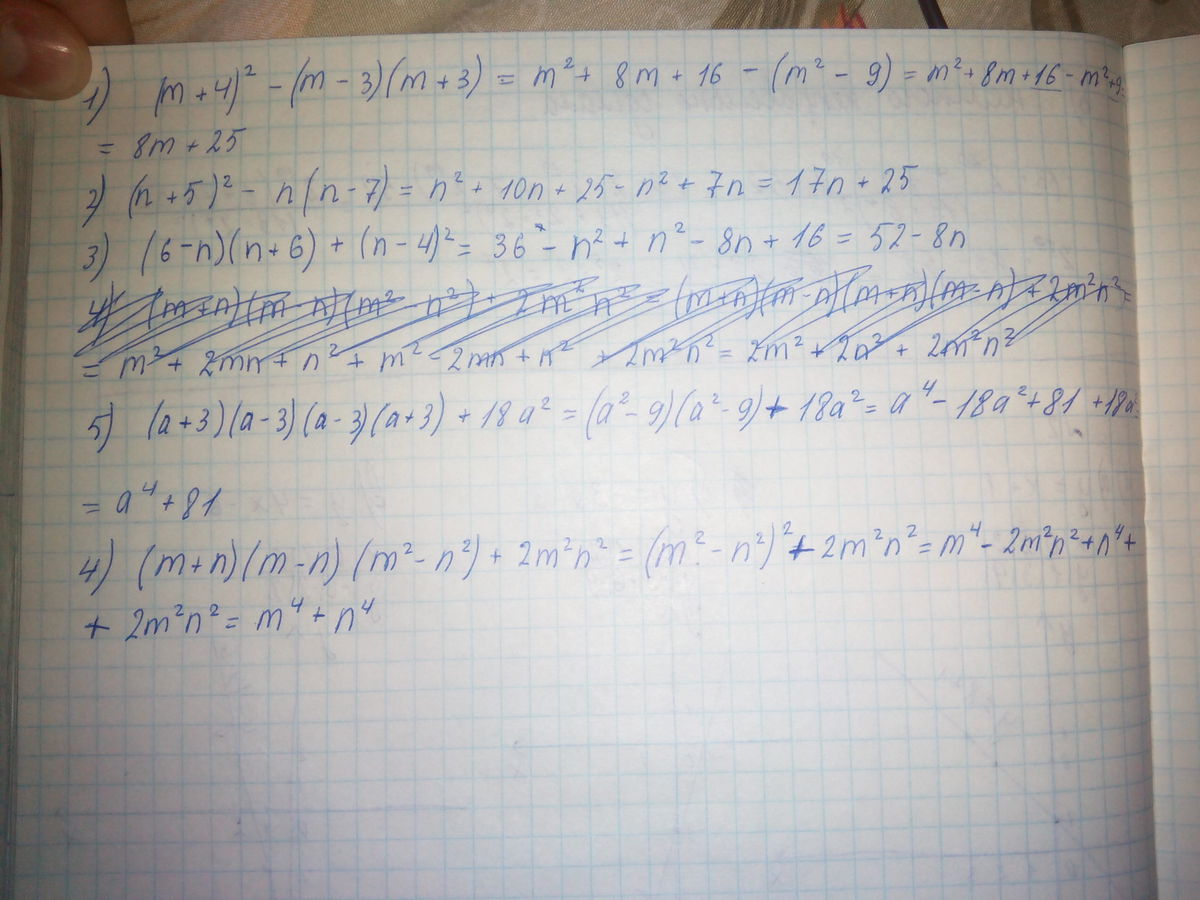 1) (m+4)² - (m-3)(m+3) = m² + 8m + 16 - (m² - 9) = m² + 8m + 16 - m² + 9 =
= 8m + 25
2) (n+5)² - n(n-7) = n² + 10n + 25 - n² + 7n = 17n + 25
3) (6-n)(n+6) + (n-4)² = 36 - n² + n² - 8n + 16 = 52 - 8n
4) (m+n)(m-n)(m² - n²) + 2m²n² = (m+n)(m-n)(m+n)(m-n) + 2m²n² =
= m² + 2mn + n² + m² - 2mn + n² + 2m²n² = 2m² + 2n² + 2m²n²
5) (a+3)(a-3)(a-3)(a+3) + 18a² = (a²-9)(a²-9) + 18a² = a⁴ - 18a² + 81 + 18a²
= a⁴ + 81
4) (m+n)(m-n)(m² - n²) + 2m²n² = (m² - n²)² + 2m²n² = m⁴ - 2m²n² + n⁴ +
+ 2m²n² = m⁴ + n⁴